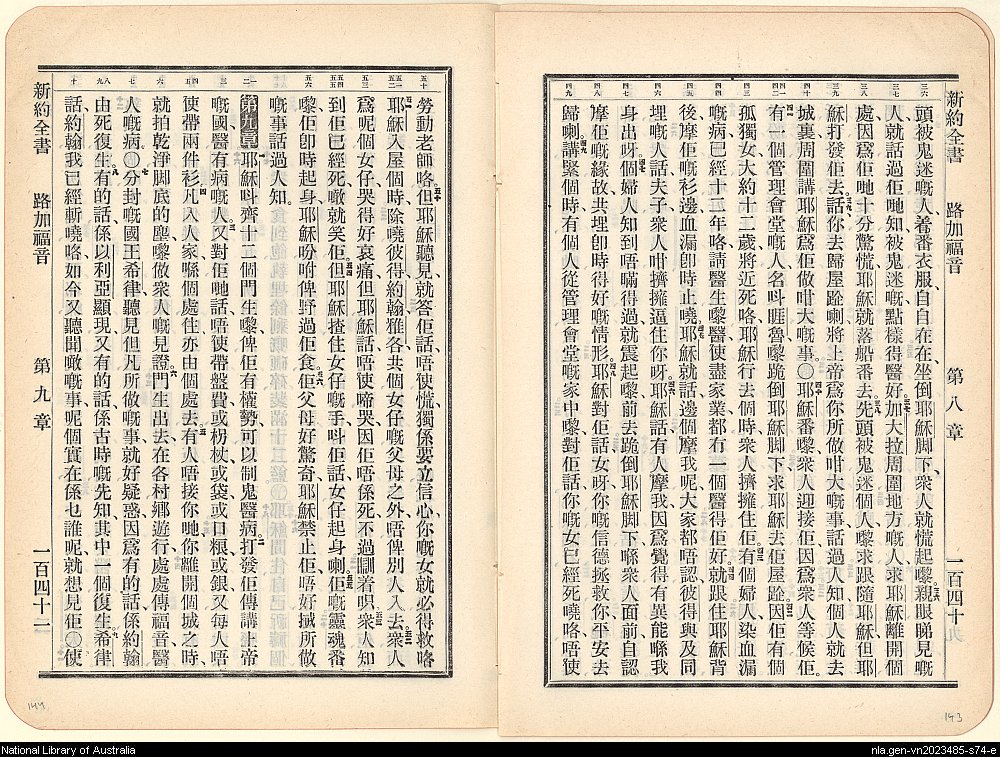 新約全書 路加福音 第八章 一百四十
頭被鬼迷嘅人、着番衣服自自在在坐倒耶穌脚下、衆人就慌起嚟、親眼睇見嘅
人就話過佢哋知被鬼迷嘅點樣得醫好、加大拉周圍地方嘅人、求耶穌離開個
處、因爲佢哋十分驚慌、耶穌就落船番去、先頭被鬼迷個人嚟求跟隨耶穌、但耶
穌打發佢去、話、你去歸屋跲喇、將上帝爲你所做咁大嘅事話過人知、個人就去
城裏周圍講耶穌爲佢做咁大嘅事○耶穌番嚟、衆人迎接佢、因爲衆人等候佢、
有一個管理會堂嘅人、名呌睚魯、嚟跪倒耶穌脚下、求耶穌去佢屋跲、因佢有個
孤獨女、大約十二歲、將近死咯、耶穌行去個時、衆人擠擁住佢、有個婦人染血漏
嘅病已經十二年咯、請醫生嚟醫、使盡家業都冇一個醫得佢好、就跟住耶穌背
後、摩佢嘅衫邊、血漏即時止嘵、耶穌就話、邊個摩我呢、大家都唔認、彼得與及同
埋嘅人話、夫子、衆人咁擠擁逼住你呀、耶穌話、有人摩我、因爲覺得有異能喺我
身出呀、個婦人知到唔瞞得過、就震起嚟、前去跪倒耶穌脚下、喺衆人面前自認
摩佢嘅緣故、共埋即時得好嘅情形、耶穌對佢話、女呀、你嘅信德拯救你、平安去
歸喇、講緊個時、有個人從管理會堂嘅家中嚟、對佢話、你嘅女已經死嘵咯、唔使
勞動老師咯、但耶穌聽見、就答佢話、唔使慌、獨係要立信心、你嘅女就必得救咯、
耶穌入屋個時、除嘵彼得、約翰、雅各、共個女仔嘅父母之外、唔俾別人入去、衆人
爲呢個女仔哭得好哀痛、但耶穌話、唔使啼哭、因佢唔係死、不過瞓着呮、衆人知
到佢已經死噉、就笑佢、但耶穌揸住女仔嘅手、呌佢話、女仔起身喇、佢嘅靈魂番
嚟、佢即時起身、耶穌吩咐俾野過佢食、佢父母好驚奇、耶穌禁止佢唔好搣所做
嘅事話過人知、
第九章 耶穌呌齊十二個門生嚟、俾佢有權勢、可以制鬼醫病、打發佢傳講上帝
嘅國、醫有病嘅人、又對佢哋話、唔使帶盤費、或枴杖、或袋、或口糧、或銀、又每人唔
使帶兩件衫、凡入人家喺個處住、亦由個處去、有人唔接你哋、你離開個城之時、
就拍乾淨脚底的塵、嚟做衆人嘅見證、門生出去、在各村鄉遊行、處處傳福音、醫
人嘅病○分封嘅國王希律、聽見但凡所做嘅事、就好疑惑、因爲有的話、係約翰
由死復生、有的話係以利亞顯現、又有的話係古時嘅先知、其中一個復生、希律
話、約翰我已經斬嘵咯、如今又聽聞噉嘅事呢、個實在係乜誰呢、就想見佢○使
新約全書 路加福音 第九章 一百四十二
144
143
National Library of Australia
nla.gen-vn2023485-s74-e